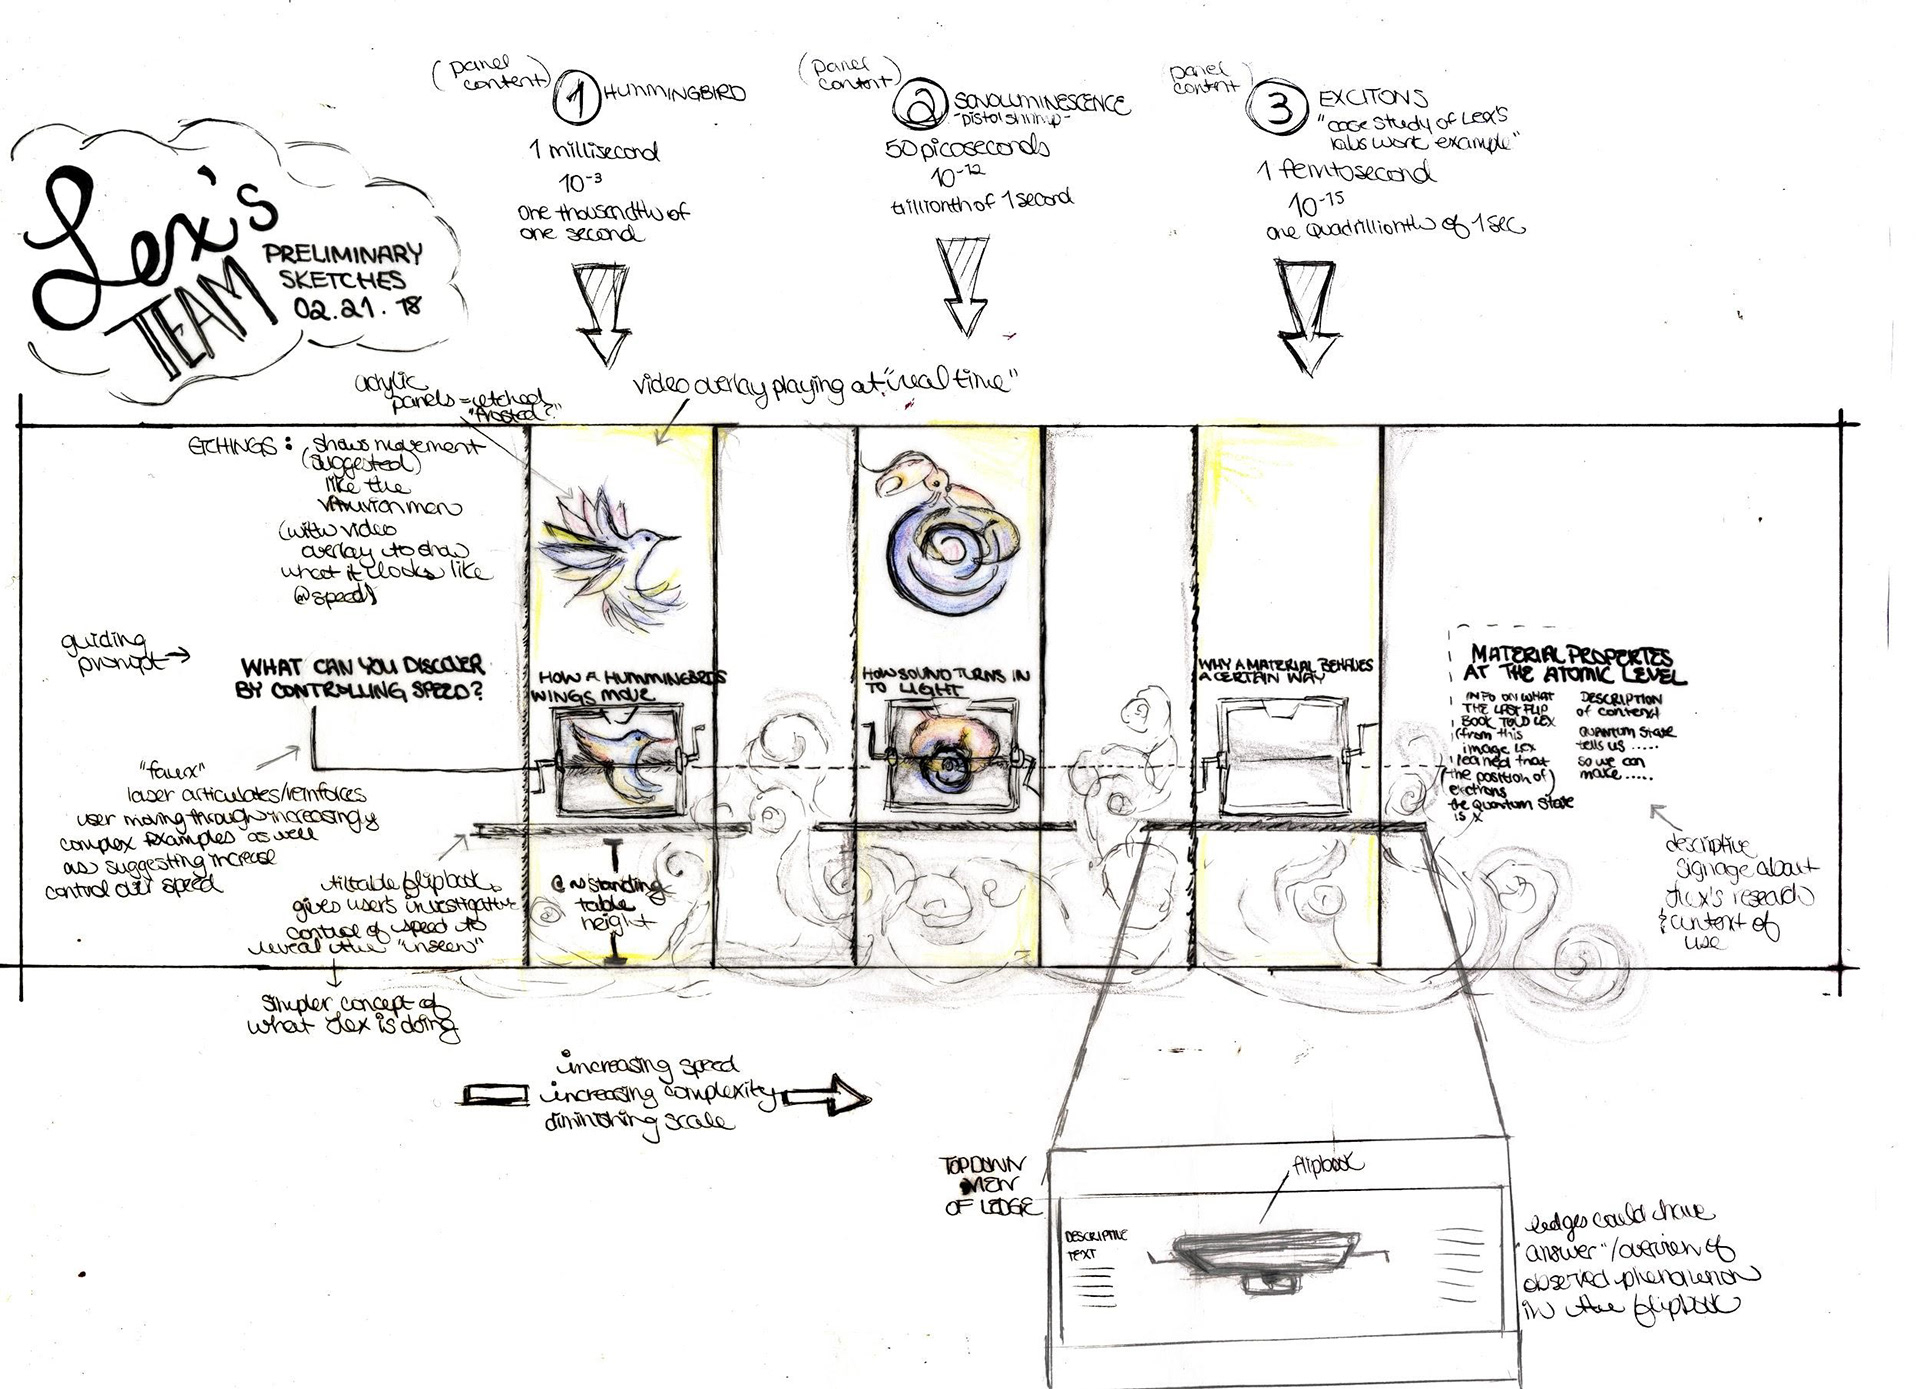 Lex's
TEAM
PRELIMINARY
SKETCHES
02.21.18
(panel
content)
1 HUMMINGBIRD
1 millisecond
10-3
one thousandth of
one second
(panel
content)
2 SONOLUMINESCENCE
-pistol shrimp-
50 picoseconds
10-12
trillionth of 1 second
panel
content
3 EXCITONS
"case study of Lex's
labs work example"
1 femtosecond
10-15
one quadrillionth of 1 sec
acrylic
panels = etched
"frosted?"
video overlay playing at "real time"
ETCHINGS: shows movement
(suggested)
like the
(with video
overlay to show
what it looks like
@ speed)
guiding
prompt →
WHAT CAN YOU DISCOVER
BY CONTROLLING SPEED?
HOW A HUMMINGBIRDS
WINGS MOVE
HOW SOUND TURNS IN
TO LIGHT
WHY A MATERIAL BEHAVES
A CERTAIN WAY
MATERIAL PROPERTES
AT THE ATOMIC LEVEL
INFO ON WHAT
THE LAST FLIP
BOOK TOLD LEX
(from this
image LEX
learned that
(the position of)
the Quantum State
is x
DESCRIPTION
of context
QUANTUM State
tells us .....
so we can
make .....
"faux"
laser articulates/reinforces
user moving through increasingly
complex examples as well
as suggesting increase
control over speed
tiltable flipbook,
gives users investigative
control of speed to
reveal the "unseen"
simpler concept of
what Lex is doing
@ standing
table
height
descriptive
signage about
Lex's research
& context of
use
increasing speed
increasing complexity
diminishing scale
TOP DOWN
VIEW
OF LEDGE
flipbook
DESCRIPTIVE
TEXT
ledges could have
"answer"/overview of
observed phenomenon
in the flipbook